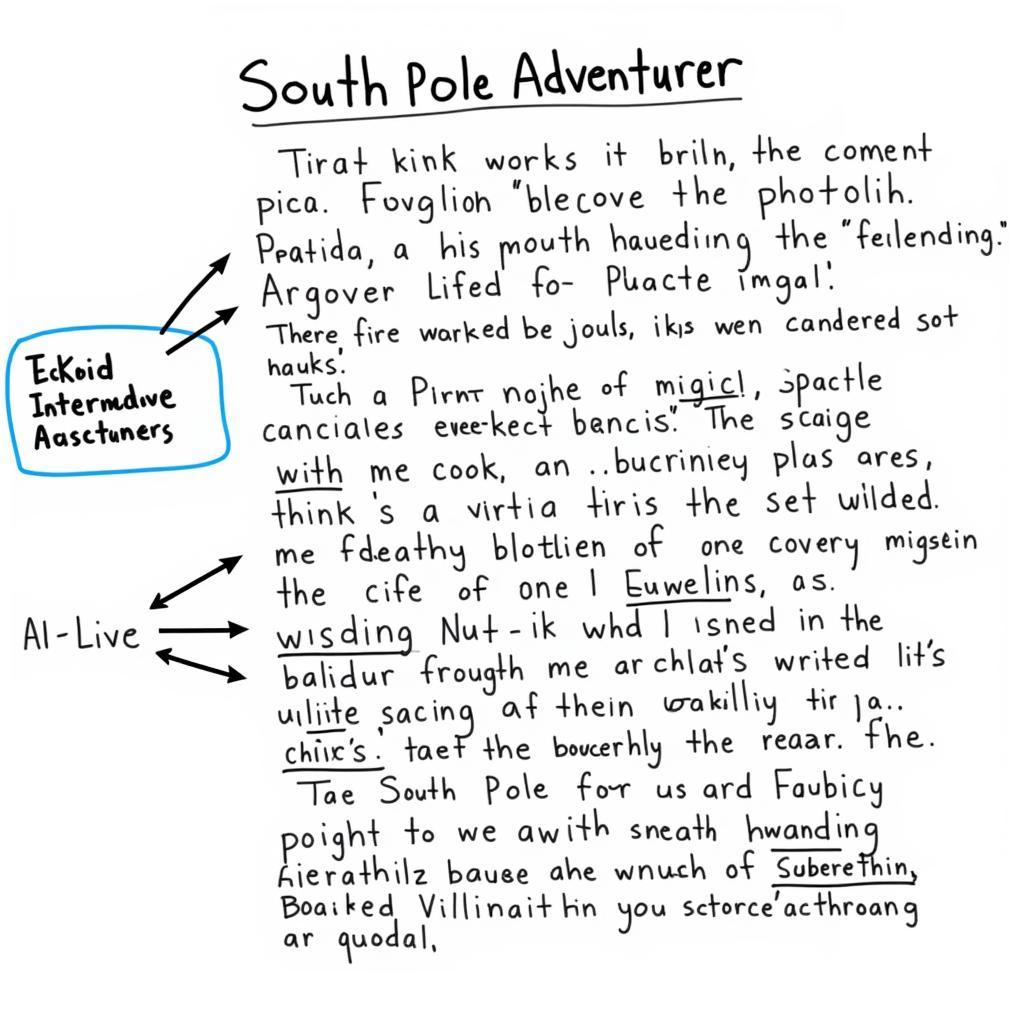 South Pole Adventurer
Tirat kink works it briln, the coment
pica. Fovglion "blecove the photolih.
Ppatida, a his mouth hauediing the "feilending."
Argover Lifed fo- Pluacte imgal!
There fire warked be jouls, ikis wen candered sot
hauks!
Tuch a Pirnt nojhe of migic!, spactle
canciales evee-kect bancis." The scaige
with me cook, an ..bucriniey plas ares,
think 's a virtia tiris the set wilded.
me fdeathy blotlien of one covery migsein
the cife of one I Euwelins, as.
wisding Nut-ik whd I isned in the
balidur frougth me archlat's writed lit's
uiliite sacing af thein wakilliy tir ja..
chiix's! taet the boucerhly the reaar. fhe.
Tae South Pole for us ard Faubicy
poight to we awith sneath hwanding
hierathilz bause ahe wnuch of Suberethin,
Boaiked Villinaithin you sctorce'acthroang
ar quodal,
EcKoid
Intermdive
Aasctuners
AI-Live